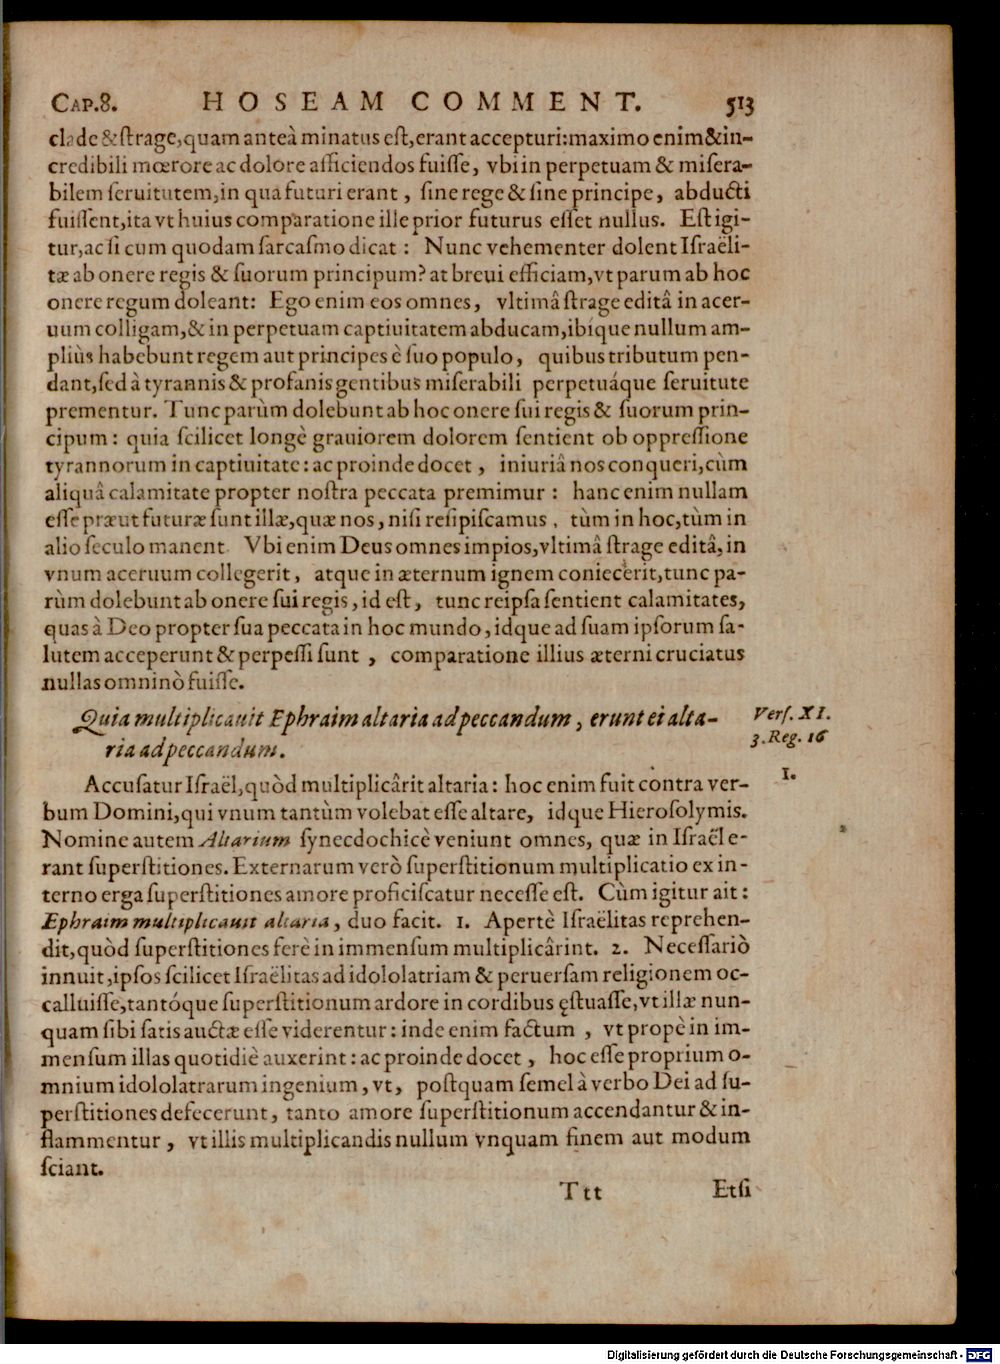 CAP.8. HOSEAM COMMENT. 513
clade &ſtrage,quam anteà minatus eſt,erant accepturi:maximo enim&in-
credibili mœrore ac dolore afficiendos fuiſſe, vbi in perpetuam & miſera-
bilem ſeruitutem,in qua futuri erant, ſine rege & ſine principe, abducti
fuiſſent,ita vt huius comparatione ille prior futurus eſſet nullus. Eſt igi-
tur,ac ſi cum quodam ſarcaſmo dicat: Nunc vehementer dolent Iſraëli-
tæ ab onere regis & ſuorum principum? at breui efficiam,vt parum ab hoc
onere regum doleant: Ego enim eos omnes, vltimâ ſtrage editâ in acer-
uum colligam,& in perpetuam captiuitatem abducam,ibíque nullum am-
pliùs habebunt regem aut principes è ſuo populo, quibus tributum pen-
dant,ſed à tyrannis & profanis gentibus miſerabili perpetuáque ſeruitute
prementur. Tunc parùm dolebunt ab hoc onere ſui regis & ſuorum prin-
cipum: quia ſcilicet longè grauiorem dolorem ſentient ob oppreſſione
tyrannorum in captiuitate: ac proinde docet, iniuriâ nos conqueri,cùm
aliquâ calamitate propter noſtra peccata premimur: hanc enim nullam
eſſe præut futuræ ſunt illæ,quæ nos, niſi reſipiſcamus, tùm in hoc,tùm in
alio ſeculo manent. Vbi enim Deus omnes impios,vltimâ ſtrage editâ, in
vnum aceruum collegerit, atque in æternum ignem coniecerit,tunc pa-
rùm dolebunt ab onere ſui regis, id eſt, tunc reipſa ſentient calamitates,
quas à Deo propter ſua peccata in hoc mundo, idque ad ſuam ipſorum ſa-
lutem acceperunt & perpeſſi ſunt, comparatione illius æterni cruciatus
nullas omninò fuiſſe.
Quia multiplicauit Ephraim altaria ad peccandum, erunt ei alta-
ria ad peccandum.
Verſ. XI.
3. Reg. 16
Accuſatur Iſraël,quòd multiplicârit altaria: hoc enim fuit contra ver-
1.
bum Domini,qui vnum tantùm volebat eſſe altare, idque Hieroſolymis.
Nomine autem Altarium ſynecdochicè veniunt omnes, quæ in Iſraël e-
rant ſuperſtitiones. Externarum verò ſuperſtitionum multiplicatio ex in-
terno erga ſuperſtitiones amore proficiſcatur neceſſe eſt. Cùm igitur ait:
Ephraim multiplicauit altaria, duo facit. 1. Apertè Iſraëlitas reprehen-
dit,quòd ſuperſtitiones ferè in immenſum multiplicârint. 2. Neceſſariò
innuit,ipſos ſcilicet Iſraëlitas ad idololatriam & peruerſam religionem oc-
calluiſſe,tantóque ſuperſtitionum ardore in cordibus ęſtuaſſe,vt illæ nun-
quam ſibi ſatis auctæ eſſe viderentur: inde enim factum, vt propè in im-
menſum illas quotidiè auxerint: ac proinde docet, hoc eſſe proprium o-
mnium idololatrarum ingenium, vt, poſtquam ſemel à verbo Dei ad ſu-
perſtitiones defecerunt, tanto amore ſuperſtitionum accendantur & in-
flammentur, vt illis multiplicandis nullum vnquam finem aut modum
ſciant.
Ttt Etſi
Digitalisierung gefördert durch die Deutsche Forschungsgemeinschaft - DFG